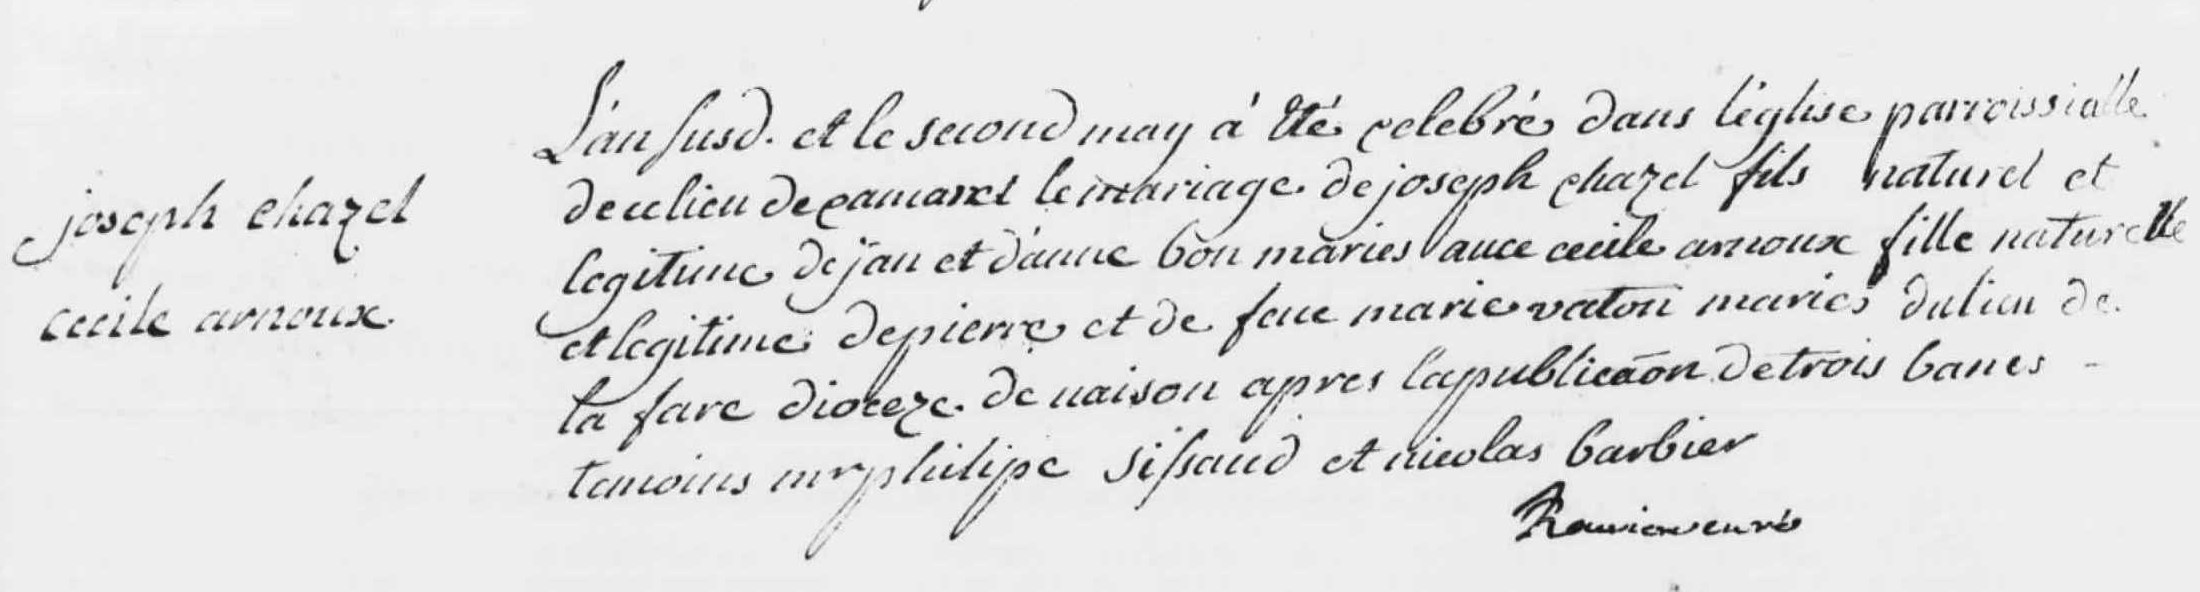 joseph chazel
cecile arnoux.
L'an susd. et le second may à été celebré dans l'église parroissialle
de ce lieu de camaret le mariage de joseph chazel fils naturel et
legitime de jan et d'anne bon maries avec cecile arnoux fille naturelle
et legitime de pierre et de feue marie vaton maries du lieu de
la fare dioceze de vaison apres la publicãon de trois bancs -
temoins mr philipe sissaud et nicolas barbier
curé